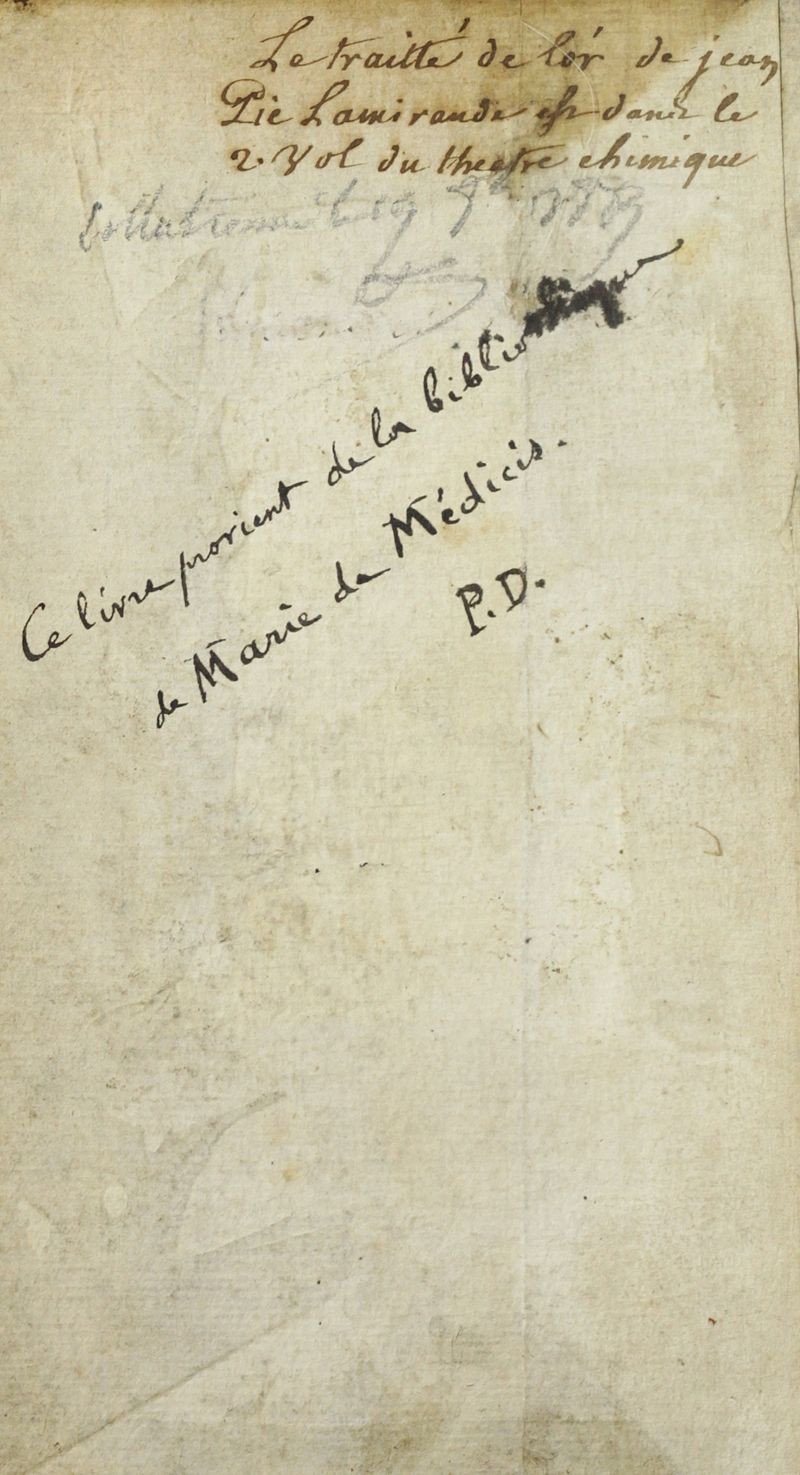 Le traitté de lór de jean
Pic Lamirande est dans le
2. Vol du theatre chimique
Ce livre provient de la bibliothèque
de Marie de Médicis.
P.D.